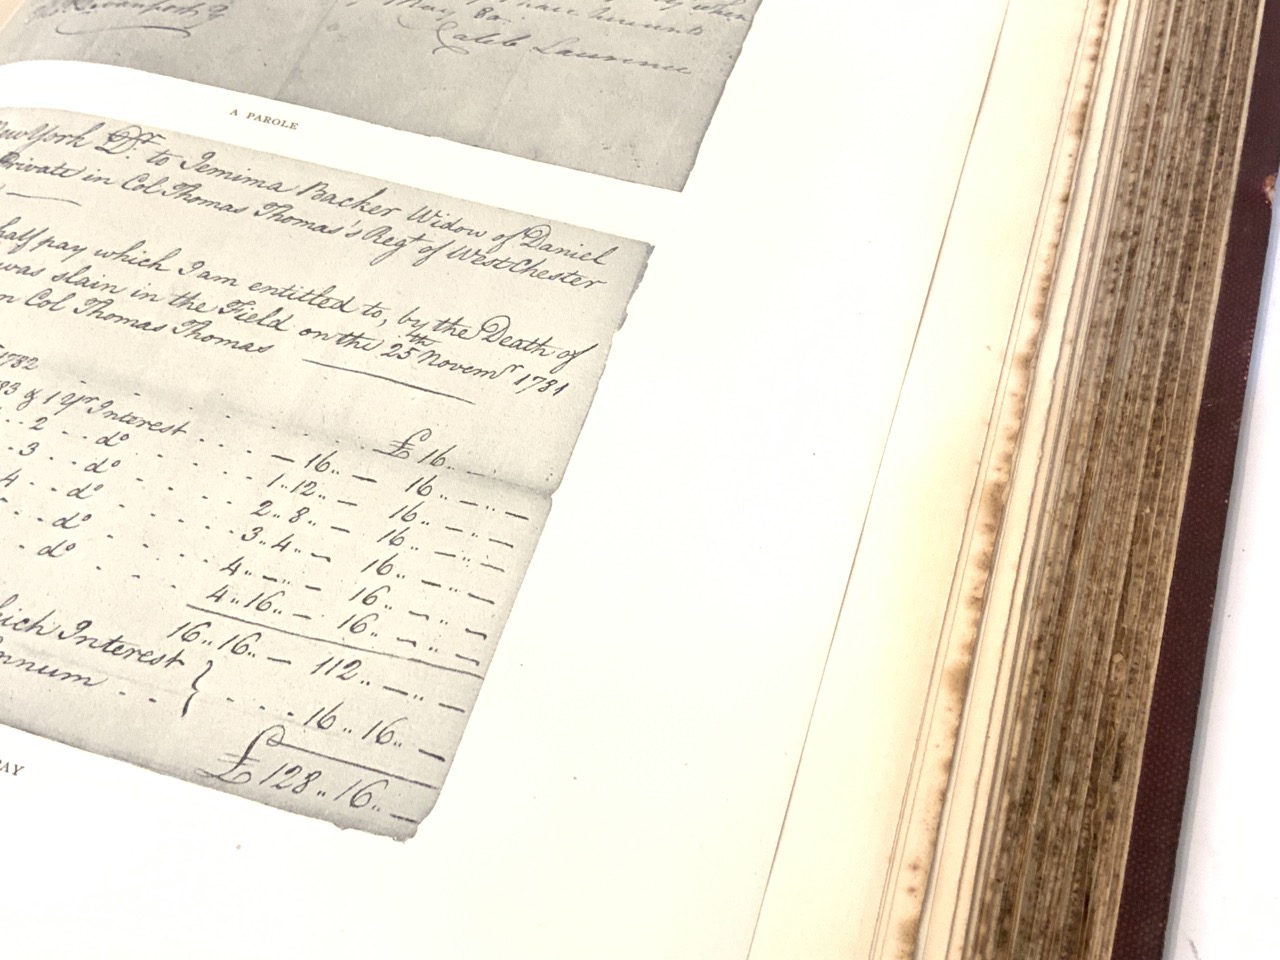 when
Caleb Laurence
A PAROLE
New York Dr. to Jemima Backer Widow of Daniel
Private in Col Thomas Thomas's Regt of WestChester
half pay which I am entitled to, by the Death of
was slain in the Field on the 25th Novemr 1781
n Col Thomas Thomas
1782 £ 16.. —..—
83 & 1 Yrs Interest — 16.. — 16.. —..—
2 do 1..12.. — 16.. —..—
3 do 2..8.. — 16.. —..—
4 do 3..4.. — 16.. —..—
do 4..—..— 16.. —..—
do 4..16.. — 16.. —..—
16..16.. — 112.. —..—
hich Interest
nnum } 16..16.. —
£ 128..16.. —
PAY